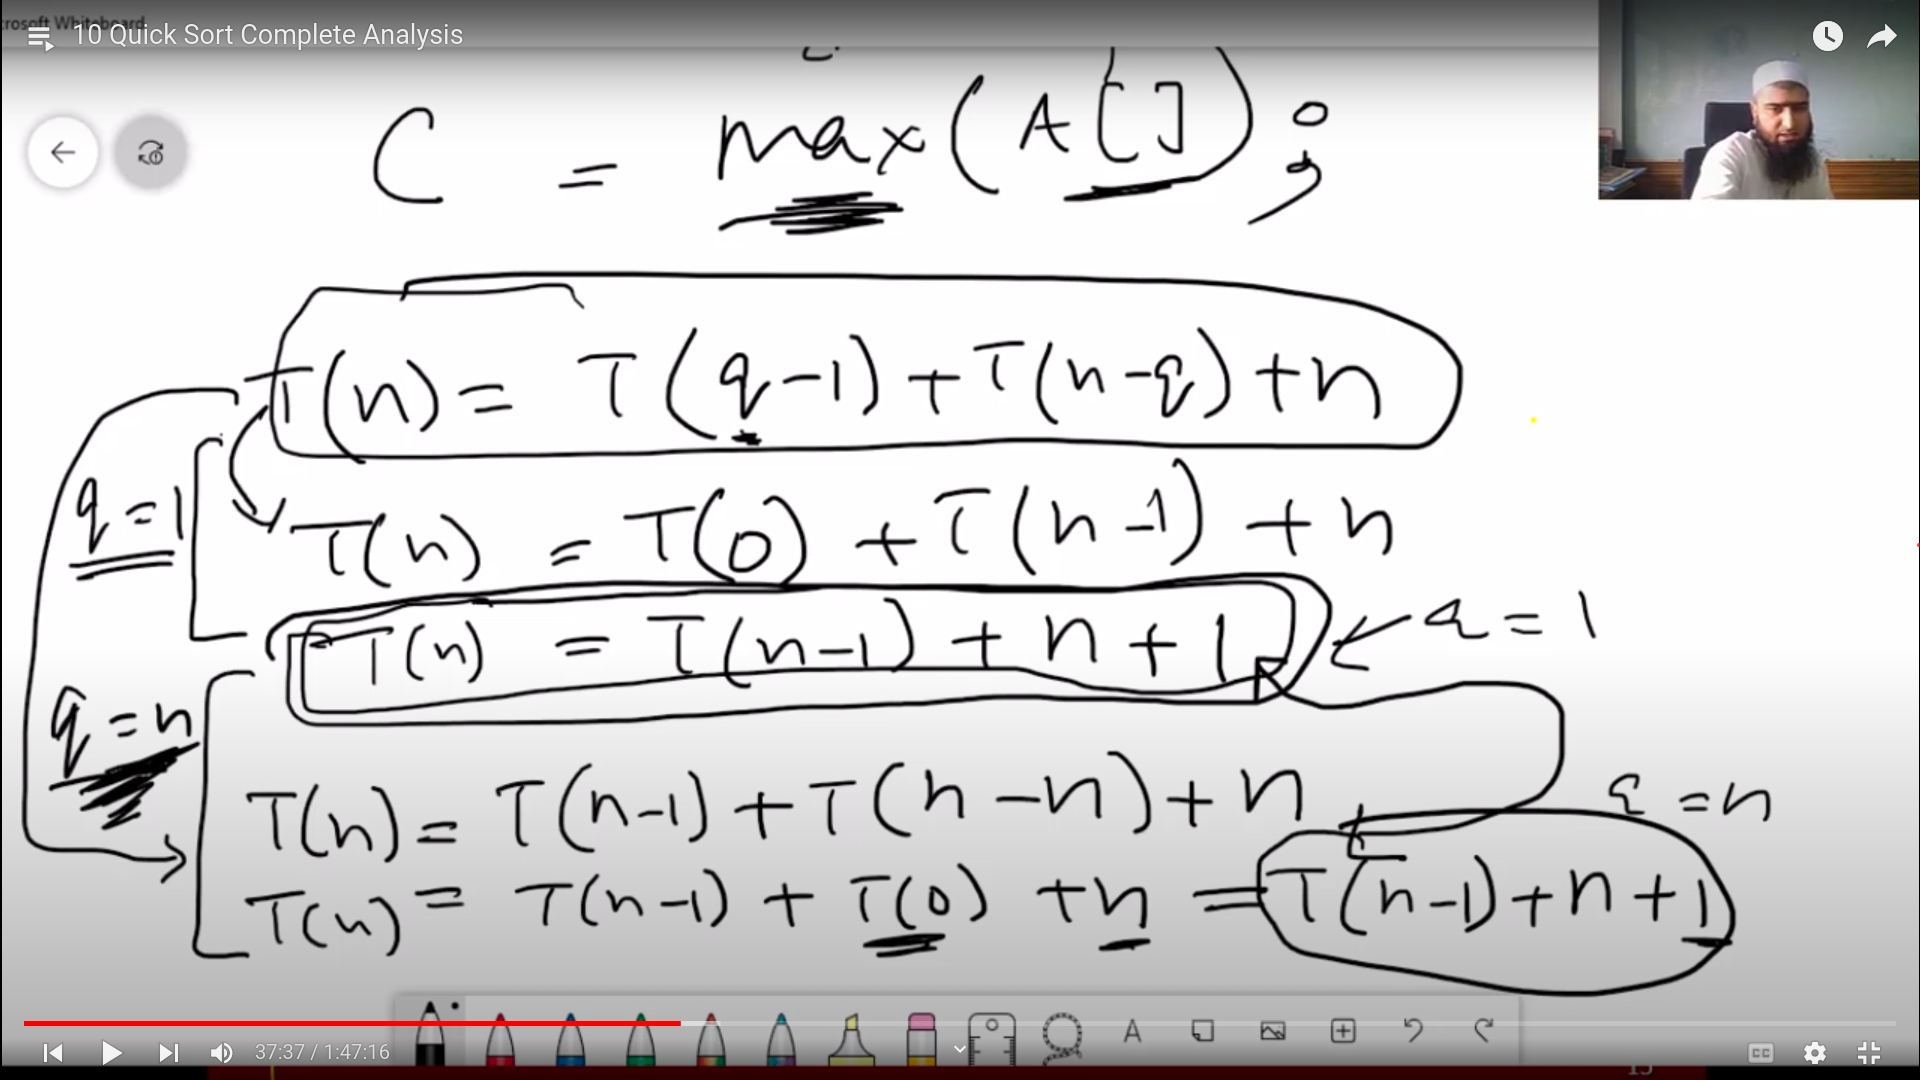 crosoft Whiteboard
10 Quick Sort Complete Analysis
C = max(A[]);
T(n) = T(q-1) + T(n-q) + n
q=1
T(n) = T(0) + T(n-1) + n
T(n) = T(n-1) + n + 1
q = 1
q=n
T(n) = T(n-1) + T(n-n) + n
q = n
T(n) = T(n-1) + T(0) + n = T(n-1) + n + 1
A
37:37 / 1:47:16
CC
15